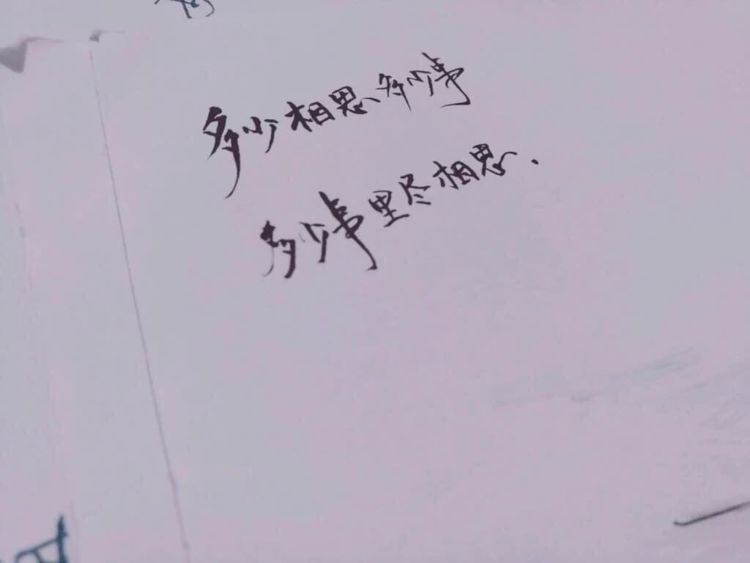 多少相思、多少事
多少事里尽相思、